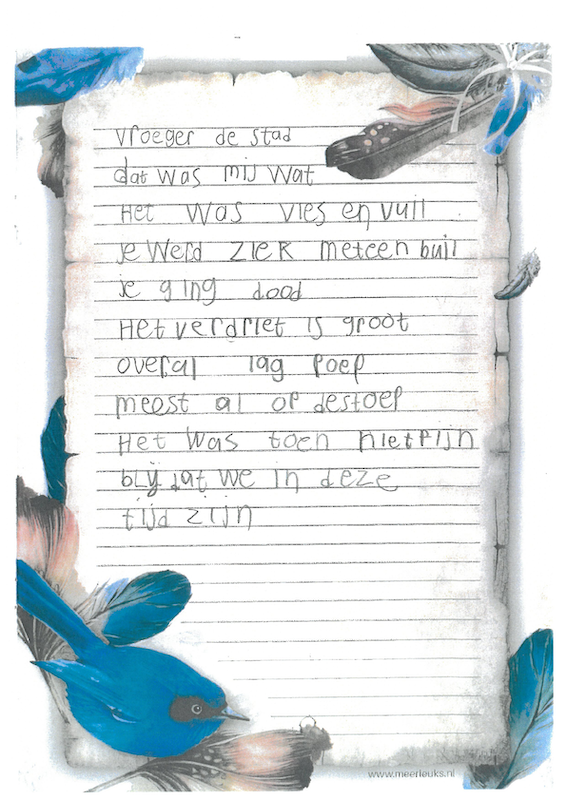 vroeger de stad
dat was mij wat
Het was vies en vuil
je werd ziek met een buil
je ging dood
Het verdriet is groot
overal lag poep
meest al op de stoep
Het was toen niet fijn
blij dat we in deze
tijd zijn
www.meerleuks.nl